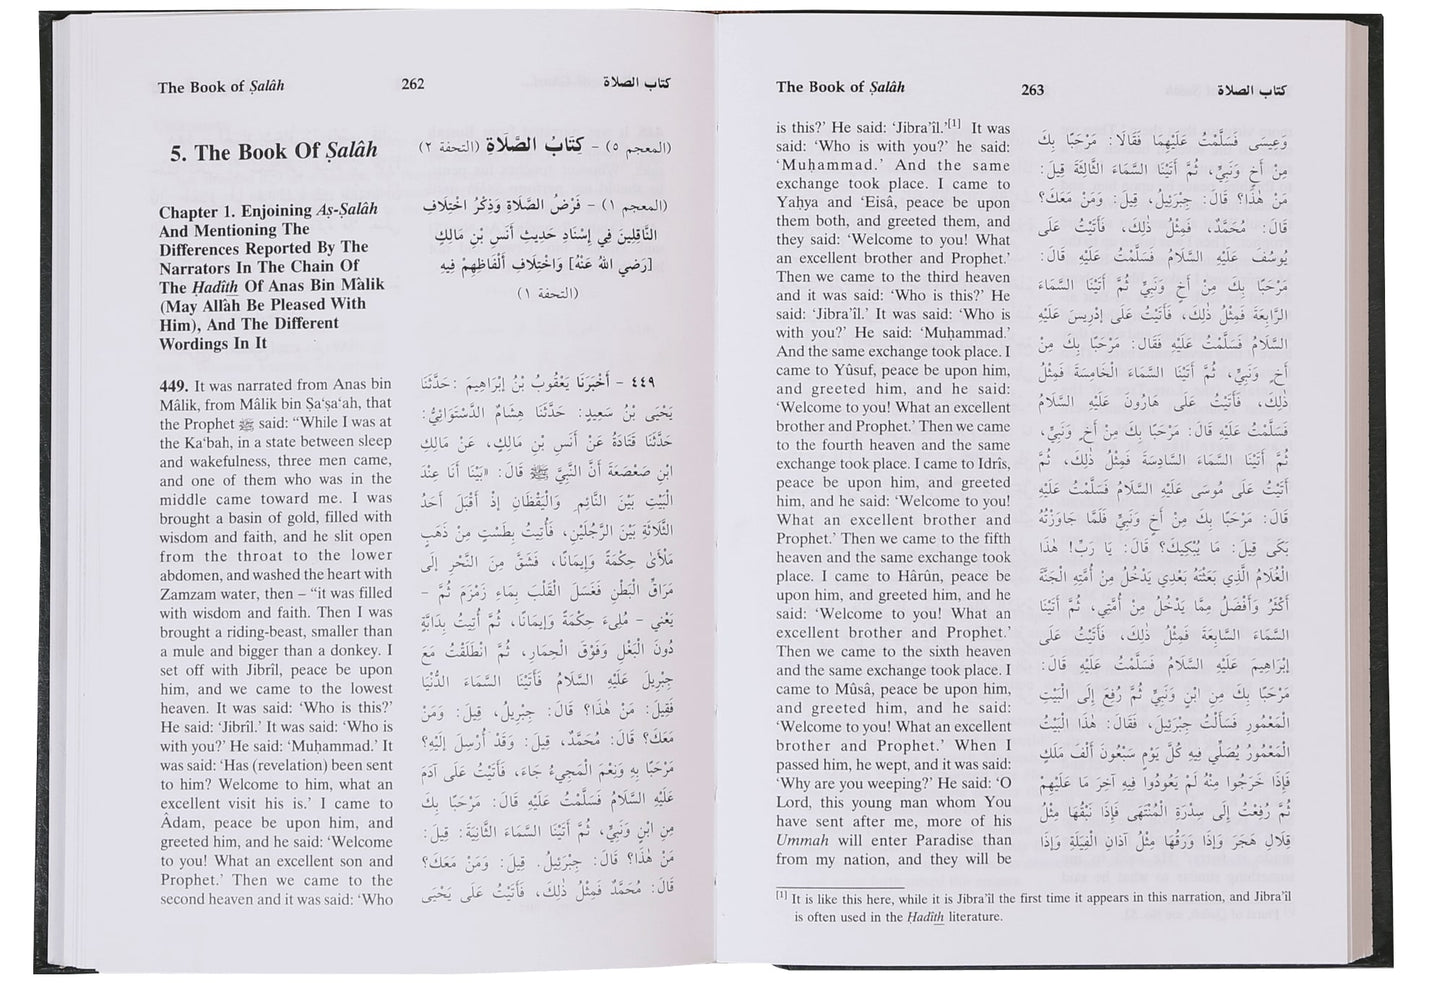 The Book of Ṣalâh 262 كتاب الصلاة
5. The Book Of Ṣalâh
Chapter 1. Enjoining Aṣ-Ṣalâh
And Mentioning The
Differences Reported By The
Narrators In The Chain Of
The Ḥadîth Of Anas Bin Mâlik
(May Allâh Be Pleased With
Him), And The Different
Wordings In It
449. It was narrated from Anas bin
Mâlik, from Mâlik bin Ṣa‘ṣa‘ah, that
the Prophet ﷺ said: “While I was at
the Ka‘bah, in a state between sleep
and wakefulness, three men came,
and one of them who was in the
middle came toward me. I was
brought a basin of gold, filled with
wisdom and faith, and he slit open
from the throat to the lower
abdomen, and washed the heart with
Zamzam water, then – “it was filled
with wisdom and faith. Then I was
brought a riding-beast, smaller than
a mule and bigger than a donkey. I
set off with Jibrîl, peace be upon
him, and we came to the lowest
heaven. It was said: ‘Who is this?’
He said: ‘Jibrîl.’ It was said: ‘Who is
with you?’ He said: ‘Muḥammad.’ It
was said: ‘Has (revelation) been sent
to him? Welcome to him, what an
excellent visit his is.’ I came to
Âdam, peace be upon him, and
greeted him, and he said: ‘Welcome
to you! What an excellent son and
Prophet.’ Then we came to the
second heaven and it was said: ‘Who
(المعجم ٥) – كِتَابُ الصَّلَاةِ (التحفة ٢)
(المعجم ١) – فَرْضُ الصَّلَاةِ وَذِكْرُ اخْتِلَافِ
النَّاقِلِينَ فِي إِسْنَادِ حَدِيثِ أَنَسِ بْنِ مَالِكٍ
[رَضِي اللهُ عَنْهُ] وَاخْتِلَافِ أَلْفَاظِهِمْ فِيهِ
(التحفة ١)
٤٤٩ – أَخْبَرَنَا يَعْقُوبُ بْنُ إِبْرَاهِيمَ: حَدَّثَنَا
يَحْيَى بْنُ سَعِيدٍ: حَدَّثَنَا هِشَامٌ الدَّسْتَوَائِيُّ:
حَدَّثَنَا قَتَادَةُ عَنْ أَنَسِ بْنِ مَالِكٍ، عَنْ مَالِكِ
ابْنِ صَعْصَعَةَ أَنَّ النَّبِيَّ ﷺ قَالَ: «بَيْنَا أَنَا عِنْدَ
الْبَيْتِ بَيْنَ النَّائِمِ وَالْيَقْظَانِ إِذْ أَقْبَلَ أَحَدُ
الثَّلَاثَةِ بَيْنَ الرَّجُلَيْنِ، فَأُتِيتُ بِطَسْتٍ مِنْ ذَهَبٍ
مَلْأَىٰ حِكْمَةً وَإِيمَانًا، فَشَقَّ مِنَ النَّحْرِ إِلَى
مَرَاقِّ الْبَطْنِ فَغَسَلَ الْقَلْبَ بِمَاءِ زَمْزَمَ ثُمَّ –
يَعْني – مُلِىءَ حِكْمَةً وَإِيمَانًا، ثُمَّ أُتِيتُ بِدَابَّةٍ
دُونَ الْبَغْلِ وَفَوْقَ الْحِمَارِ، ثُمَّ انْطَلَقْتُ مَعَ
جِبْرِيلَ عَلَيْهِ السَّلَامُ فَأَتَيْنَا السَّمَاءَ الدُّنْيَا
فَقِيلَ: مَنْ هٰذَا؟ قَالَ: جِبْرِيلُ، قِيلَ: وَمَنْ
مَعَكَ؟ قَالَ: مُحَمَّدٌ، قِيلَ: وَقَدْ أُرْسِلَ إِلَيْهِ؟
مَرْحَبًا بِهِ وَنِعْمَ الْمَجِيءُ جَاءَ، فَأَتَيْتُ عَلَى آدَمَ
عَلَيْهِ السَّلَامُ فَسَلَّمْتُ عَلَيْهِ قَالَ: مَرْحَبًا بِكَ
مِنِ ابْنٍ وَنَبِيٍّ، ثُمَّ أَتَيْنَا السَّمَاءَ الثَّانِيَةَ: قِيلَ:
مَنْ هٰذَا؟ قَالَ: جِبْرَئِيلُ. قِيلَ: وَمَنْ مَعَكَ؟
قَالَ: مُحَمَّدٌ فَمِثْلُ ذٰلِكَ، فَأَتَيْتُ عَلَى يَحْيَى
The Book of Ṣalâh 263 كتاب الصلاة
is this?’ He said: ‘Jibra’îl.’[1] It was
said: ‘Who is with you?’ he said:
‘Muḥammad.’ And the same
exchange took place. I came to
Yaḥya and ‘Eisâ, peace be upon
them both, and greeted them, and
they said: ‘Welcome to you! What
an excellent brother and Prophet.’
Then we came to the third heaven
and it was said: ‘Who is this?’ He
said: ‘Jibra’îl.’ It was said: ‘Who is
with you?’ He said: ‘Muḥammad.’
And the same exchange took place. I
came to Yûsuf, peace be upon him,
and greeted him, and he said:
‘Welcome to you! What an excellent
brother and Prophet.’ Then we came
to the fourth heaven and the same
exchange took place. I came to Idris,
peace be upon him, and greeted
him, and he said: ‘Welcome to you!
What an excellent brother and
Prophet.’ Then we came to the fifth
heaven and the same exchange took
place. I came to Hârûn, peace be
upon him, and greeted him, and he
said: ‘Welcome to you! What an
excellent brother and Prophet.’
Then we came to the sixth heaven
and the same exchange took place. I
came to Mûsâ, peace be upon him,
and greeted him, and he said:
‘Welcome to you! What an excellent
brother and Prophet.’ When I
passed him, he wept, and it was said:
‘Why are you weeping?’ He said: ‘O
Lord, this young man whom You
have sent after me, more of his
Ummah will enter Paradise than
from my nation, and they will be
وَعِيسَى فَسَلَّمْتُ عَلَيْهِمَا فَقَالَا: مَرْحَبًا بِكَ
مِنْ أَخٍ وَنَبِيٍّ، ثُمَّ أَتَيْنَا السَّمَاءَ الثَّالِثَةَ قِيلَ:
مَنْ هٰذَا؟ قَالَ: جِبْرَئِيلُ، قِيلَ: وَمَنْ مَعَكَ؟
قَالَ: مُحَمَّدٌ، فَمِثْلُ ذٰلِكَ، فَأَتَيْتُ عَلَى
يُوسُفَ عَلَيْهِ السَّلَامُ فَسَلَّمْتُ عَلَيْهِ قَالَ:
مَرْحَبًا بِكَ مِنْ أَخٍ وَنَبِيٍّ ثُمَّ أَتَيْنَا السَّمَاءَ
الرَّابِعَةَ فَمِثْلُ ذٰلِكَ، فَأَتَيْتُ عَلَى إِدْرِيسَ عَلَيْهِ
السَّلَامُ فَسَلَّمْتُ عَلَيْهِ فَقَالَ: مَرْحَبًا بِكَ مِنْ
أَخٍ وَنَبِيٍّ، ثُمَّ أَتَيْنَا السَّمَاءَ الْخَامِسَةَ فَمِثْلُ
ذٰلِكَ، فَأَتَيْتُ عَلَى هَارُونَ عَلَيْهِ السَّلَامُ
فَسَلَّمْتُ عَلَيْهِ قَالَ: مَرْحَبًا بِكَ مِنْ أَخٍ وَنَبِيٍّ،
ثُمَّ أَتَيْنَا السَّمَاءَ السَّادِسَةَ فَمِثْلُ ذٰلِكَ، ثُمَّ
أَتَيْتُ عَلَى مُوسَى عَلَيْهِ السَّلَامُ فَسَلَّمْتُ عَلَيْهِ
قَالَ: مَرْحَبًا بِكَ مِنْ أَخٍ وَنَبِيٍّ فَلَمَّا جَاوَزْتُهُ
بَكَى قِيلَ: مَا يُبْكِيكَ؟ قَالَ: يَا رَبِّ! هٰذَا
الْغُلَامُ الَّذِي بَعَثْتَهُ بَعْدِي يَدْخُلُ مِنْ أُمَّتِهِ الْجَنَّةَ
أَكْثَرُ وَأَفْضَلُ مِمَّا يَدْخُلُ مِنْ أُمَّتِي، ثُمَّ أَتَيْنَا
السَّمَاءَ السَّابِعَةَ فَمِثْلُ ذٰلِكَ، فَأَتَيْتُ عَلَى
إِبْرَاهِيمَ عَلَيْهِ السَّلَامُ فَسَلَّمْتُ عَلَيْهِ قَالَ:
مَرْحَبًا بِكَ مِنِ ابْنٍ وَنَبِيٍّ ثُمَّ رُفِعَ إِلَى الْبَيْتِ
الْمَعْمُورِ فَسَأَلْتُ جِبْرَئِيلَ، فَقَالَ: هٰذَا الْبَيْتُ
الْمَعْمُورُ يُصَلِّي فِيهِ كُلَّ يَوْمٍ سَبْعُونَ أَلْفَ مَلَكٍ
فَإِذَا خَرَجُوا مِنْهُ لَمْ يَعُودُوا فِيهِ آخِرَ مَا عَلَيْهِمْ
ثُمَّ رُفِعْتُ إِلَى سِدْرَةِ الْمُنْتَهَى فَإِذَا نَبْقُهَا مِثْلُ
قِلَالِ هَجَرَ وَإِذَا وَرَقُهَا مِثْلُ آذَانِ الْفِيَلَةِ وَإِذَا
[1] It is like this here, while it is Jibra’îl the first time it appears in this narration, and Jibra’îl
is often used in the Ḥadîth literature.